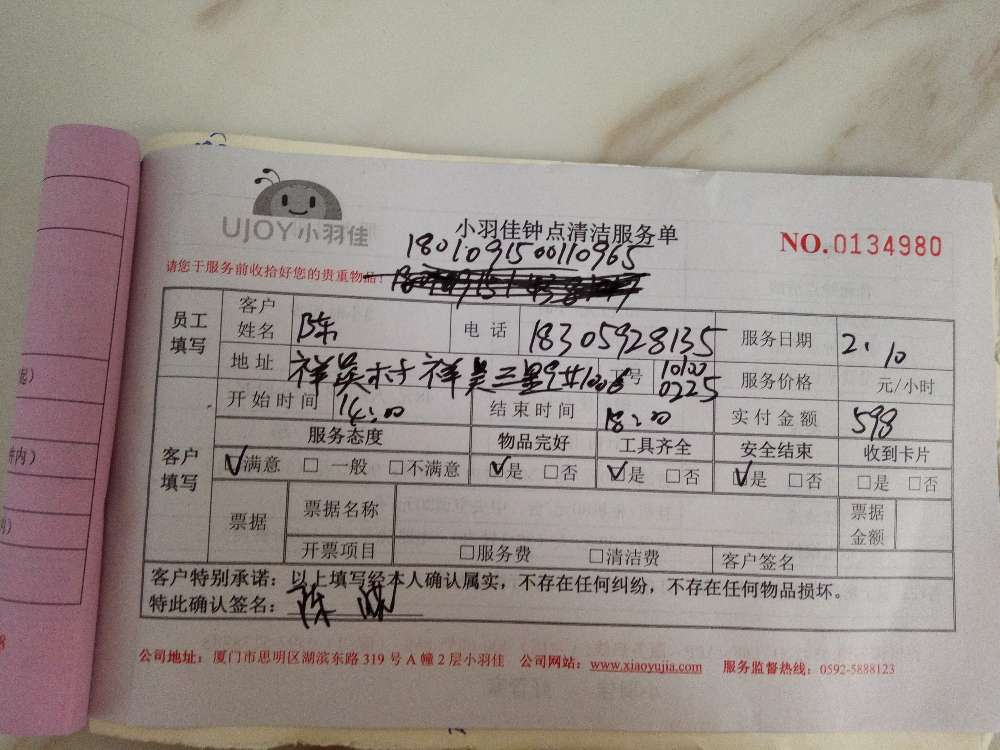 UJOY小羽佳
小羽佳钟点清洁服务单
NO.0134980
1801091500110965
请您于服务前收拾好您的贵重物品!
员工填写 客户姓名 陈 电话 18305928135 服务日期 2.10
地址 祥吴村祥吴三里9廿100 工号 10100 0225 服务价格 元/小时
开始时间 14:00 结束时间 18:00 实付金额 598
客户填写 服务态度 物品完好 工具齐全 安全结束 收到卡片
✓满意 □一般 □不满意 ✓是 □否 ✓是 □否 ✓是 □否 □是 □否
票据 票据名称 票据金额
开票项目 □服务费 □清洁费 客户签名
客户特别承诺:以上填写经本人确认属实,不存在任何纠纷,不存在任何物品损坏。
特此确认签名:陈
公司地址:厦门市思明区湖滨东路 319 号 A 幢 2 层小羽佳 公司网站:www.xiaoyujia.com 服务监督热线:0592-5888123